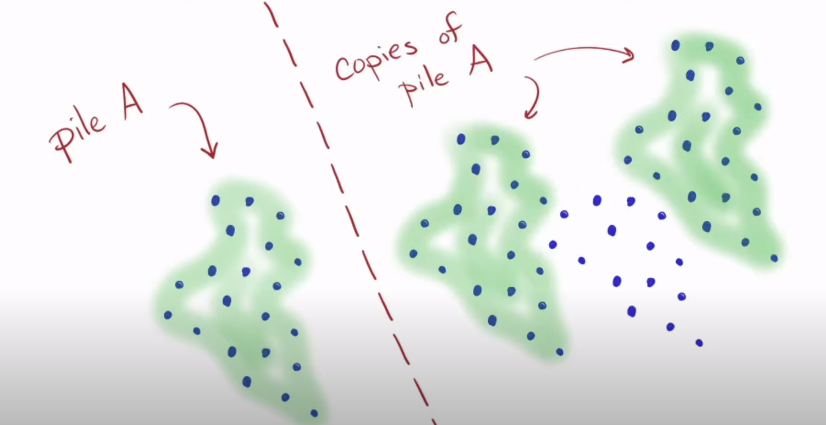 pile A
Copies of
pile A